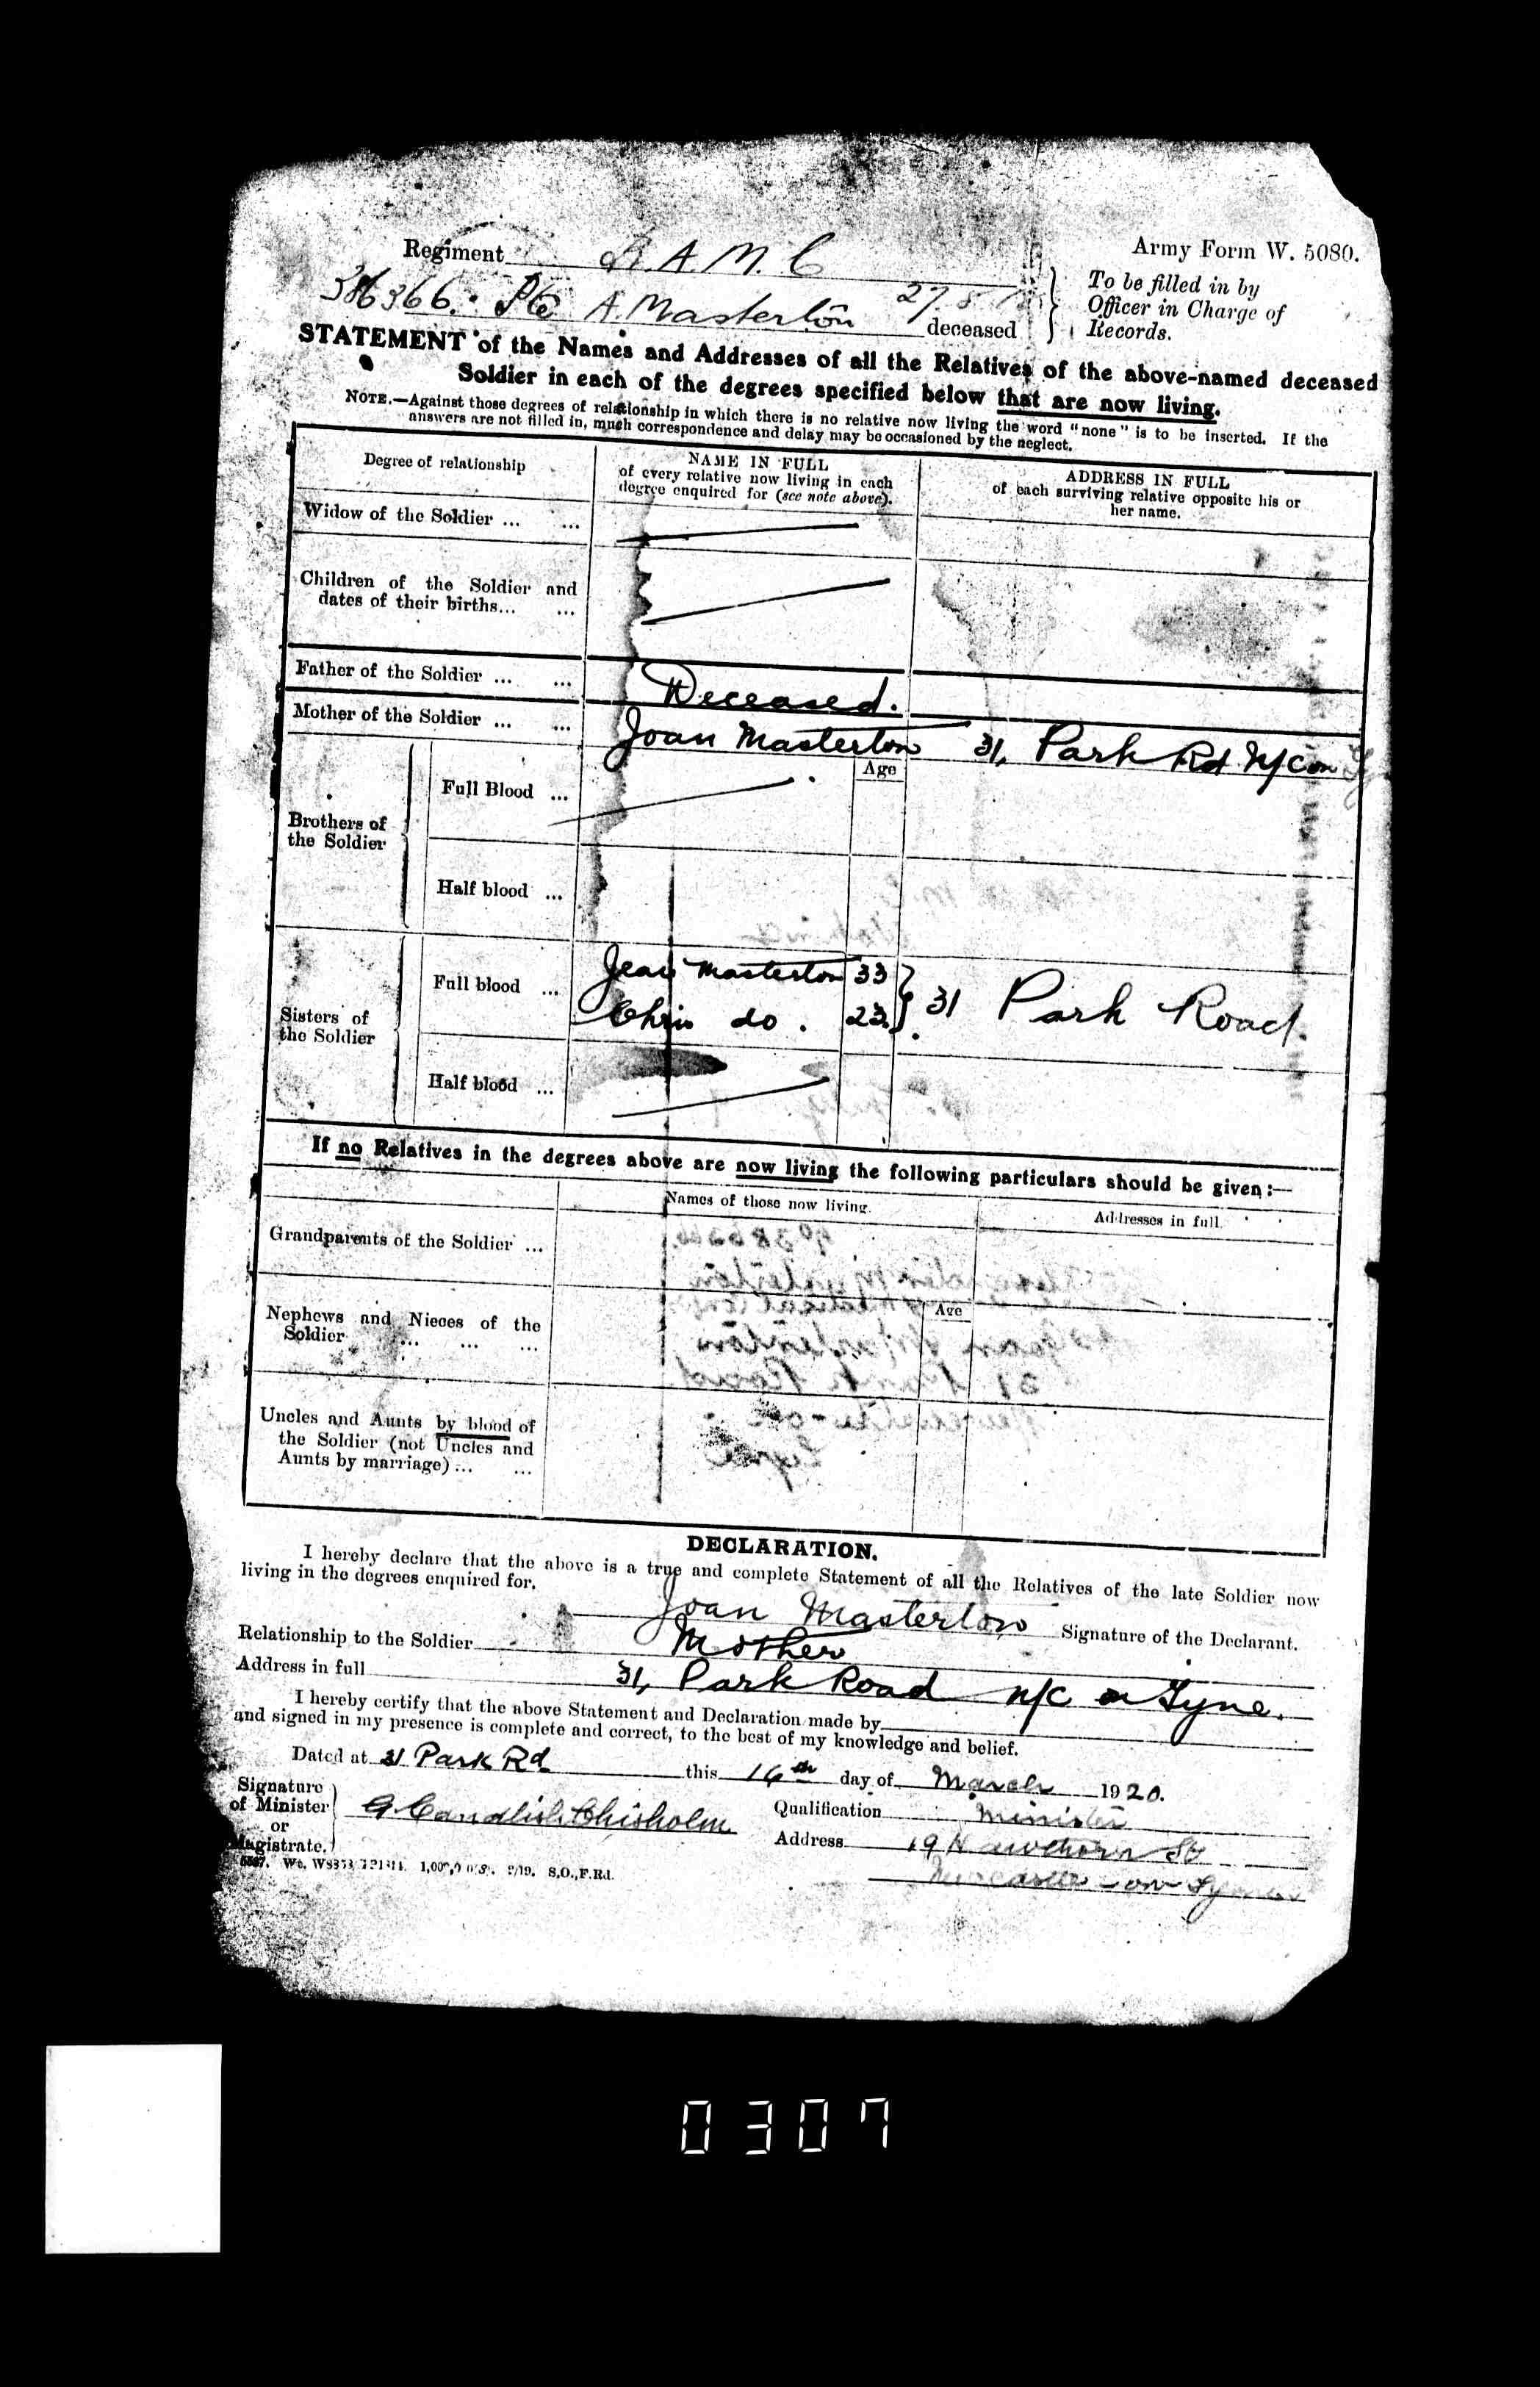 Regiment R.A.M.C
Army Form W. 5080.
386366. Pte A. Masterton 27.8. deceased
To be filled in by
Officer in Charge of
Records.
STATEMENT of the Names and Addresses of all the Relatives of the above-named deceased
Soldier in each of the degrees specified below that are now living.
NOTE.—Against those degrees of relationship in which there is no relative now living the word "none" is to be inserted. If the
answers are not filled in, much correspondence and delay may be occasioned by the neglect.
Degree of relationship
NAME IN FULL
of every relative now living in each
degree enquired for (see note above).
ADDRESS IN FULL
of each surviving relative opposite his or
her name.
Widow of the Soldier ... ...
Children of the Soldier and
dates of their births... ...
Father of the Soldier ... ... Deceased.
Mother of the Soldier ... ... Joan Masterton 31, Park Rd N/C on Ty
Age
Brothers of
the Soldier
Full Blood ...
Half blood ...
Sisters of
the Soldier
Full blood ...
Jean Masterton 33
Chris do. 23.
31 Park Road.
Half blood ...
If no Relatives in the degrees above are now living the following particulars should be given:—
Names of those now living.
Addresses in full.
Grandparents of the Soldier ...
Age
Nephews and Nieces of the
Soldier ... ... ...
Uncles and Aunts by blood of
the Soldier (not Uncles and
Aunts by marriage) ... ...
DECLARATION.
I hereby declare that the above is a true and complete Statement of all the Relatives of the late Soldier now
living in the degrees enquired for.
Joan Masterton Signature of the Declarant.
Relationship to the Soldier Mother
Address in full 31, Park Road N/C on Tyne.
I hereby certify that the above Statement and Declaration made by
and signed in my presence is complete and correct, to the best of my knowledge and belief.
Dated at 31 Park Rd this 16th day of March 1920.
Signature
of Minister
or
Magistrate.
G Candlish Chisholm
Qualification Minister
Address 19 Hawthorn St
Newcastle-on-Tyne
S.O.,F.Rd.
0307